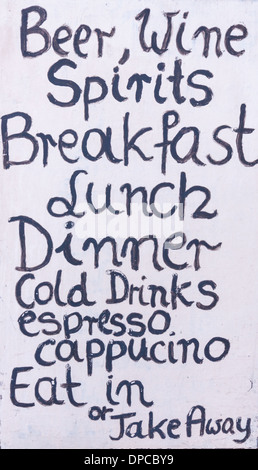 Beer, Wine
Spirits
Breakfast
Lunch
Dinner
Cold Drinks
espresso,
cappucino
Eat in
or Take Away
alamy
www.alamy.com
DPCBY9